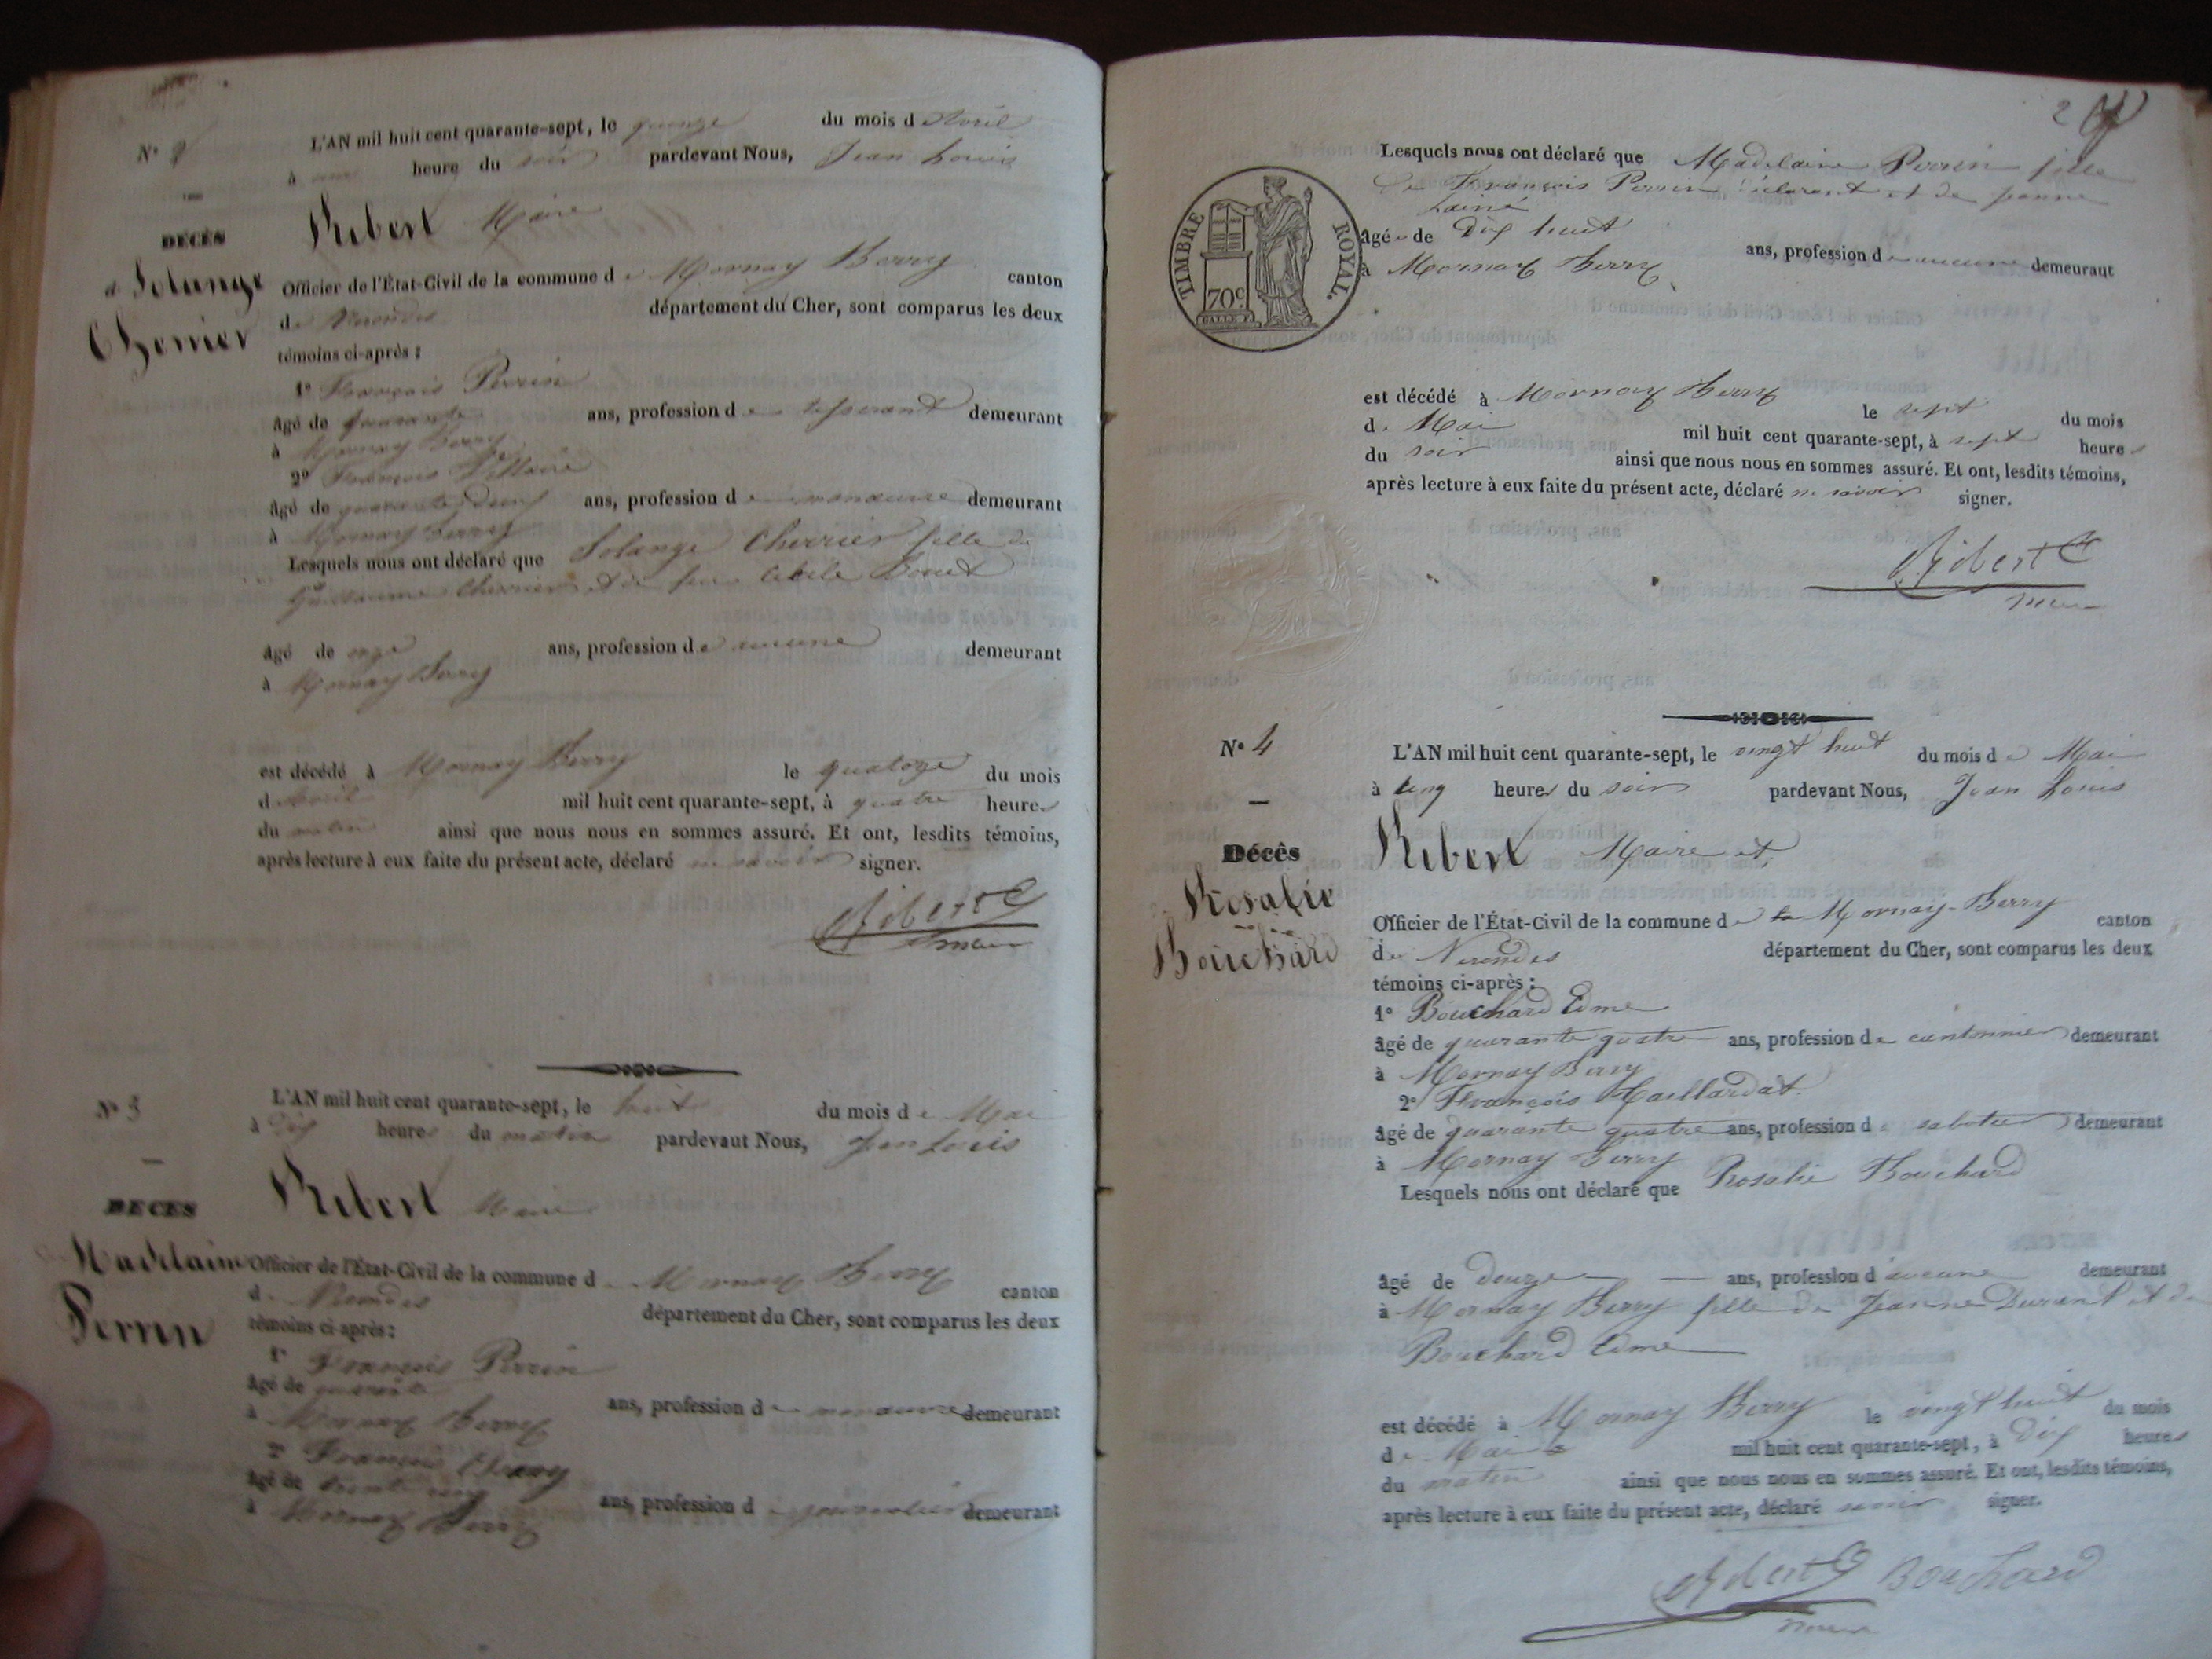 N° 2
L'AN mil huit cent quarante-sept, le quinze du mois d Avril
à une heure du soir pardevant Nous, Jean Louis
Ribert Maire
DÉCÈS
d Solange
Cherrier
Officier de l'État-Civil de la commune de Mornay Berry canton
de Nérondes département du Cher, sont comparus les deux
témoins ci-après :
1° François Perrin
âgé de quarante ans, profession de tisserant demeurant
à Mornay Berry
2° François
âgé de quarante deux ans, profession de manœuvre demeurant
à Mornay Berry
Lesquels nous ont déclaré que Solange Cherrier fille de
Guillaume Cherrier et de feue
âgé de onze ans, profession de aucune demeurant
à Mornay Berry
est décédé à Mornay Berry le quatorze du mois
d Avril mil huit cent quarante-sept, à quatre heures
du matin ainsi que nous nous en sommes assuré. Et ont, lesdits témoins,
après lecture à eux faite du présent acte, déclaré ne savoir signer.
Ribert
maire
N° 3
L'AN mil huit cent quarante-sept, le huit du mois de Mai
à dix heures du matin pardevant Nous, Jean Louis
Ribert Maire
DÉCÈS
Madelaine
Perrin
Officier de l'État-Civil de la commune de Mornay Berry canton
de Nerondes département du Cher, sont comparus les deux
témoins ci-après :
1° François Perrin
âgé de quarante ans, profession de manœuvre demeurant
à Mornay Berry
2° François
âgé de trente cinq ans, profession de journalier demeurant
à Mornay Berry
2
Lesquels nous ont déclaré que Madelaine Perrin fille
de François Perrin déclarant et de jeanne
Lainé
âgée de dix huit ans, profession de aucune demeurant
à Mornay Berry
TIMBRE ROYAL.
70c
est décédé à Mornay Berry le sept du mois
de Mai mil huit cent quarante-sept, à sept heures
du soir ainsi que nous nous en sommes assuré. Et ont, lesdits témoins,
après lecture à eux faite du présent acte, déclaré ne savoir signer.
Ribert
maire
N° 4
L'AN mil huit cent quarante-sept, le vingt huit du mois de Mai
à cinq heures du soir pardevant Nous, Jean Louis
Ribert Maire et
Décès
Rosalie
Bouchard
Officier de l'État-Civil de la commune de Mornay-Berry canton
de Nerondes département du Cher, sont comparus les deux
témoins ci-après :
1° Bouchard Edme
âgé de quarante quatre ans, profession de cantonnier demeurant
à Mornay Berry
2° François Gaillardat
âgé de quarante quatre ans, profession de sabotier demeurant
à Mornay Berry
Lesquels nous ont déclaré que Rosalie Bouchard
âgé de douze ans, profession d aucune demeurant
à Mornay Berry fille de Jeanne Durant et de
Bouchard Edme
est décédé à Mornay Berry le vingt huit du mois
de Mai mil huit cent quarante-sept, à dix heures
du matin ainsi que nous nous en sommes assuré. Et ont, lesdits témoins,
après lecture à eux faite du présent acte, déclaré savoir signer.
Ribert Bouchard
maire